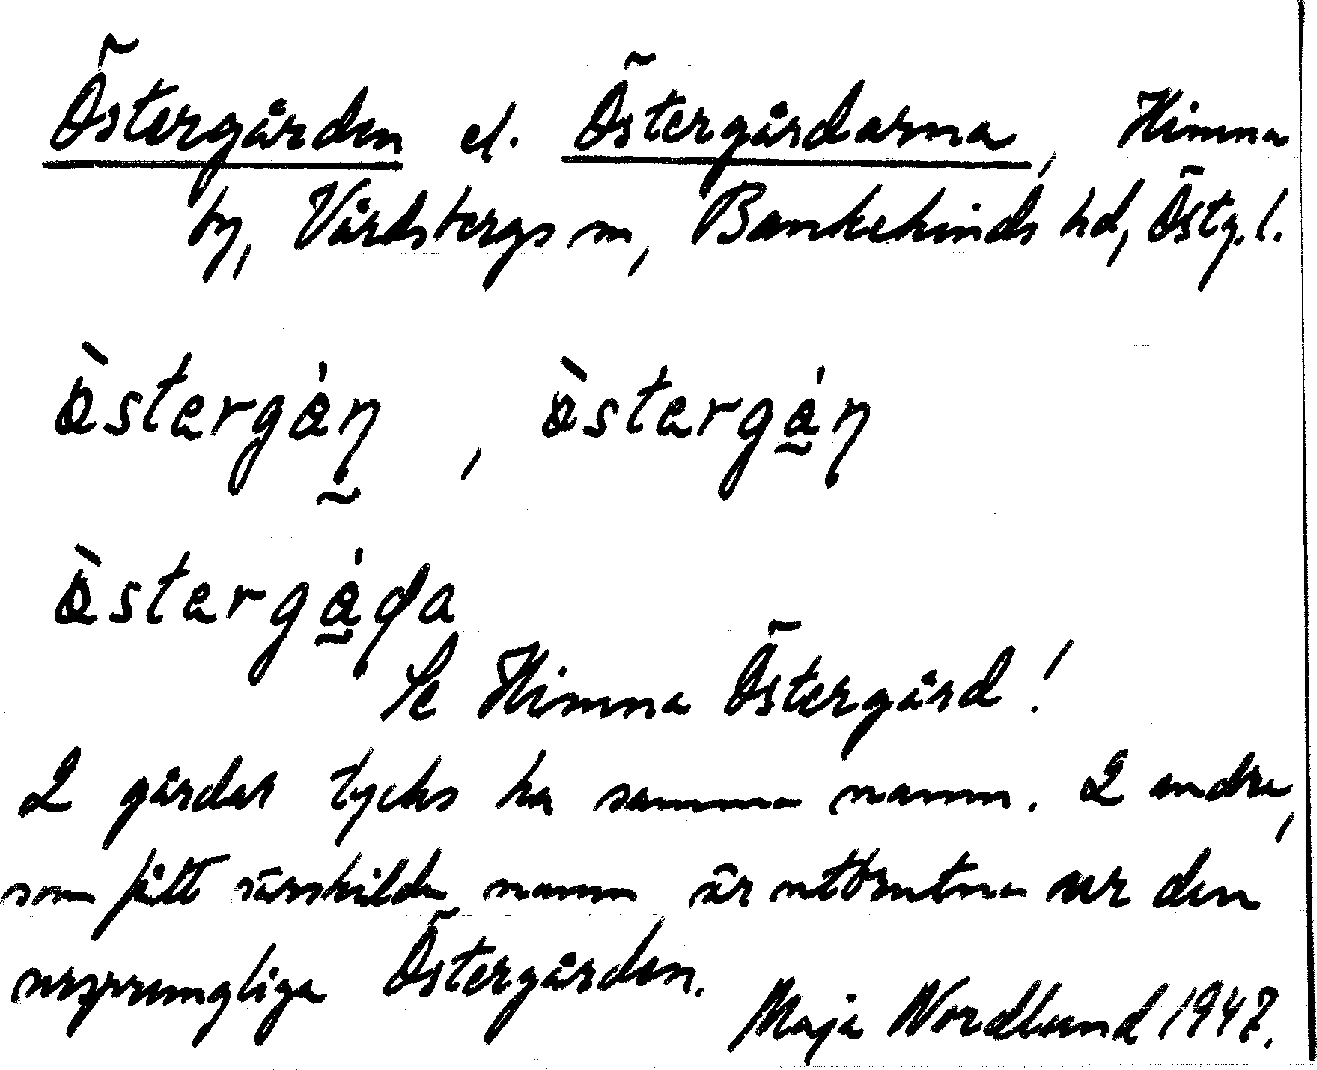 Östergården el. Östergårdarna, Himna
by, Vårdsbergs sn, Bankekinds hd, Östg. l.
östergån̥ , östergån
östergåda
Se Himna Östergård!
2 gårdar tycks ha samma namn. 2 andra,
som fått särskilda namn är utbrutna ur den
ursprungliga Östergården.
Maja Nordlund 1947.